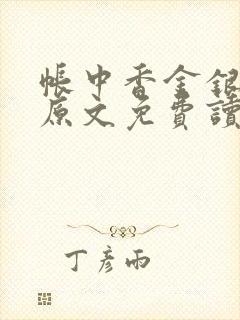 帳中香金銀
原文免費讀
丁彥雨